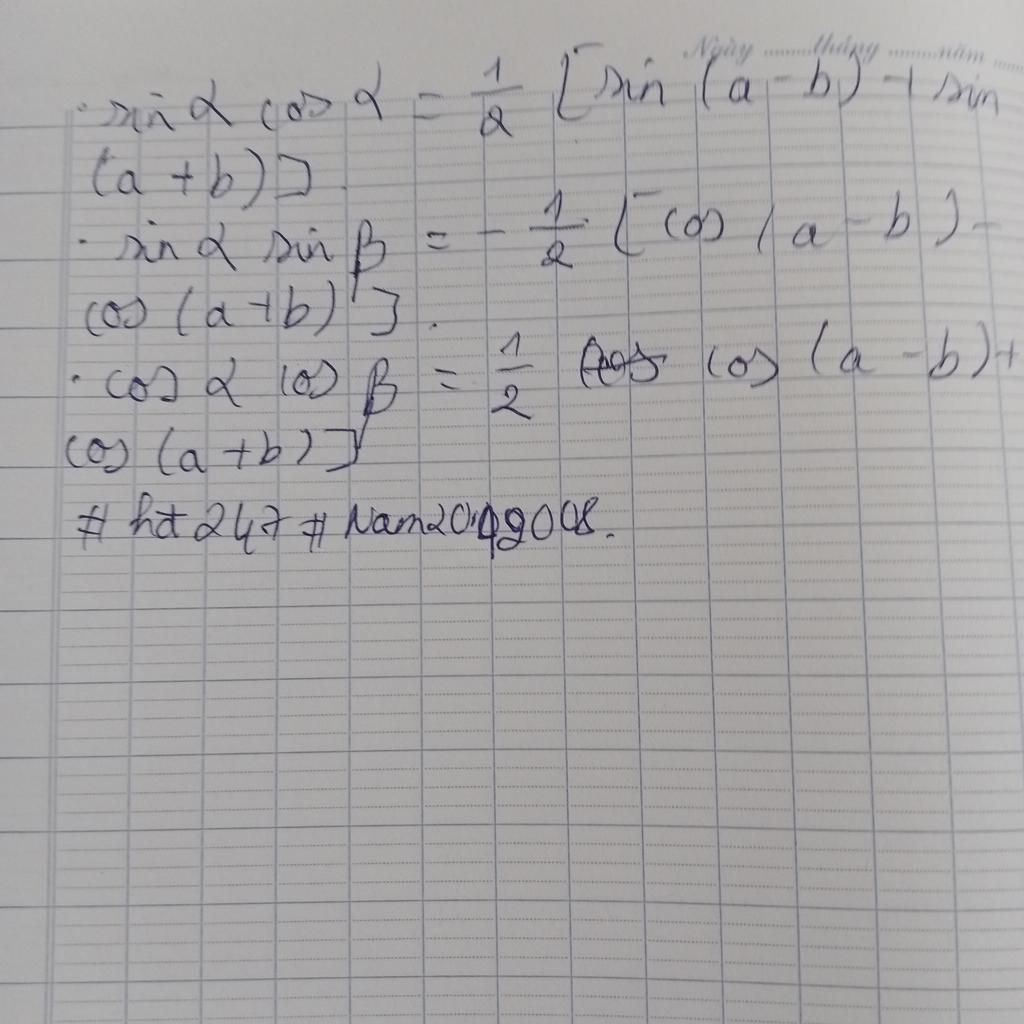 Ngày ........ tháng ........ năm .....
· sin α cos α = 1/2 [sin (a - b) + sin
(a + b)].
· sin α sin β = - 1/2 [cos (a - b) -
cos (a + b)].
· cos α cos β = 1/2 cos (a - b) +
cos (a + b)]